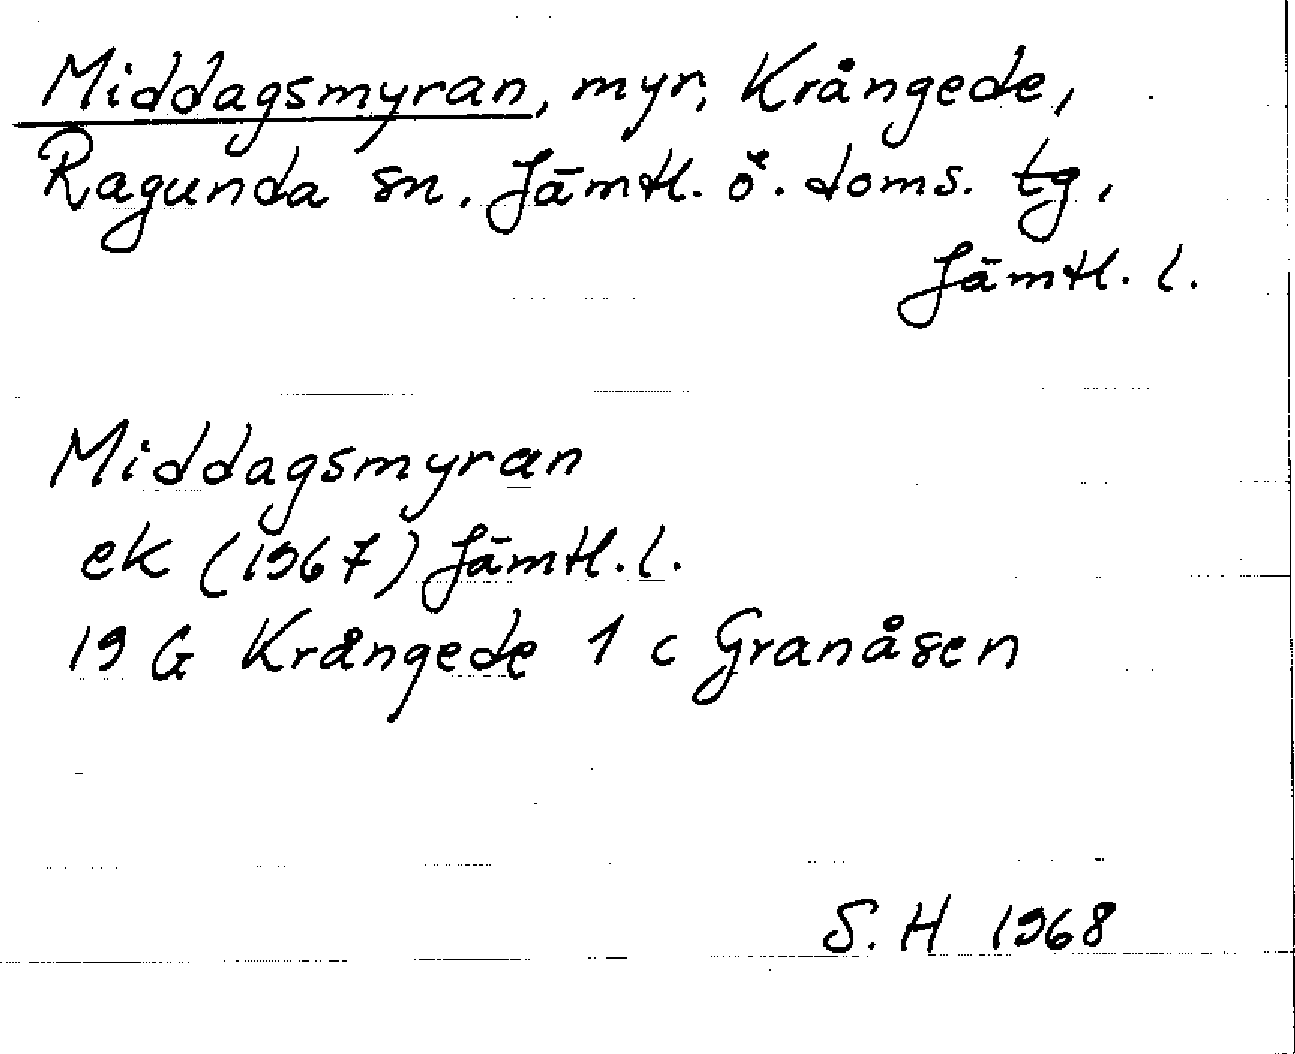 Middagsmyran, myr, Krångede,
Ragunda sn. Jämtl. ö. doms. tg,
Jämtl. l.
Middagsmyran
ek (1967) Jämtl. l.
19 G Krångede 1 c Granåsen
S. H 1968